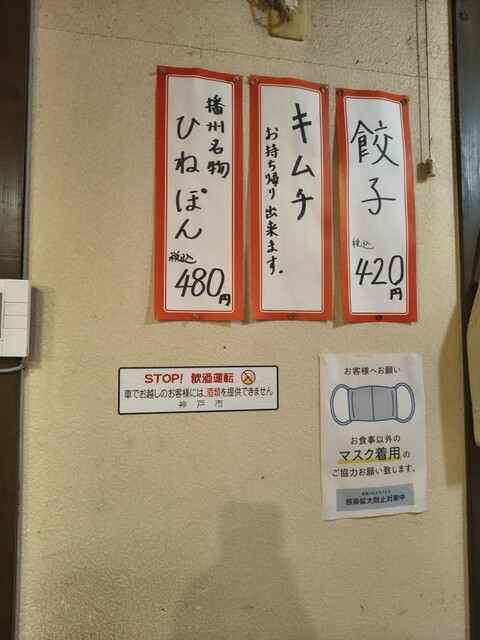 餃子
税込
420円
キムチ
お持ち帰り出来ます。
播州名物
ひねぽん
税込
480円
STOP! 飲酒運転
車でお越しのお客様には、酒類を提供できません
神戸市
お客様へお願い
お食事以外の
マスク着用の
ご協力お願い致します。
感染拡大防止対策中